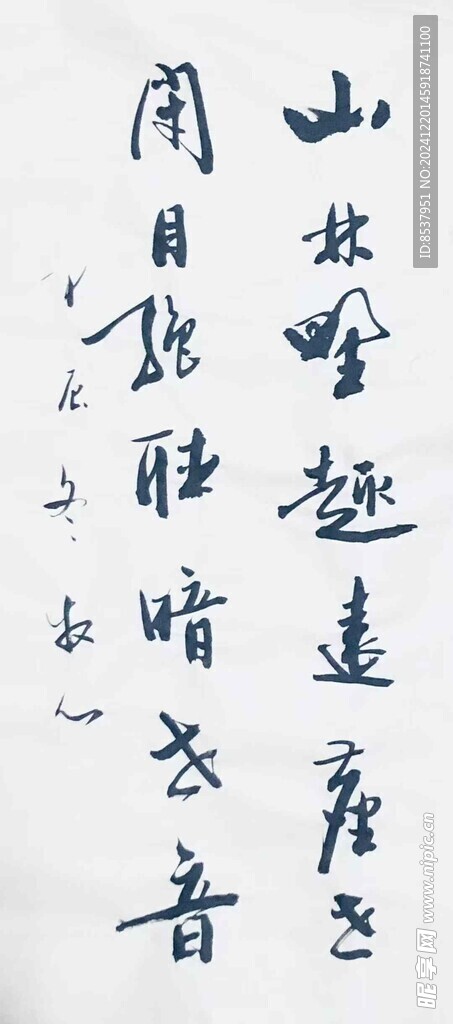 山林野趣遠塵世
閉目聽暗世音
甲辰冬牧心
ID:8537951 NO:20241220145918741100
昵享网 www.nipic.cn